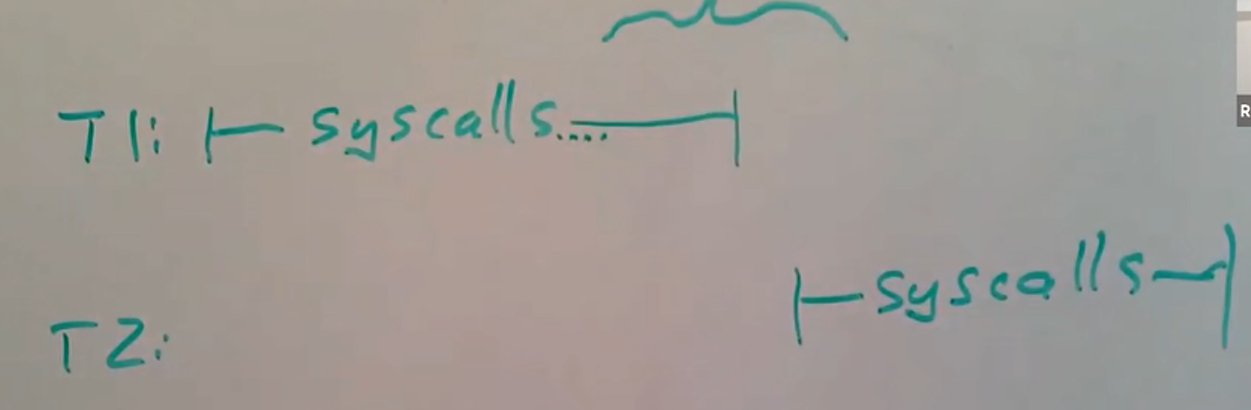 T1: syscalls....
syscalls
T2:
R